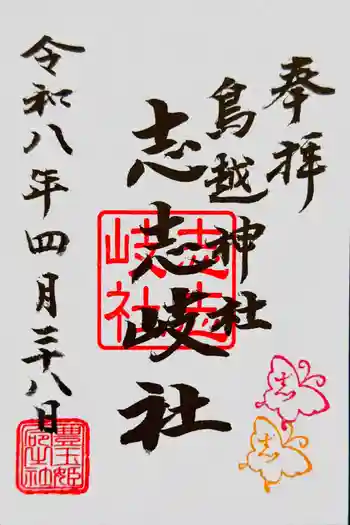 奉拝
鳥越神社
志志岐社
令和八年四月二十八日
志志
岐社
豊玉姫
志
志